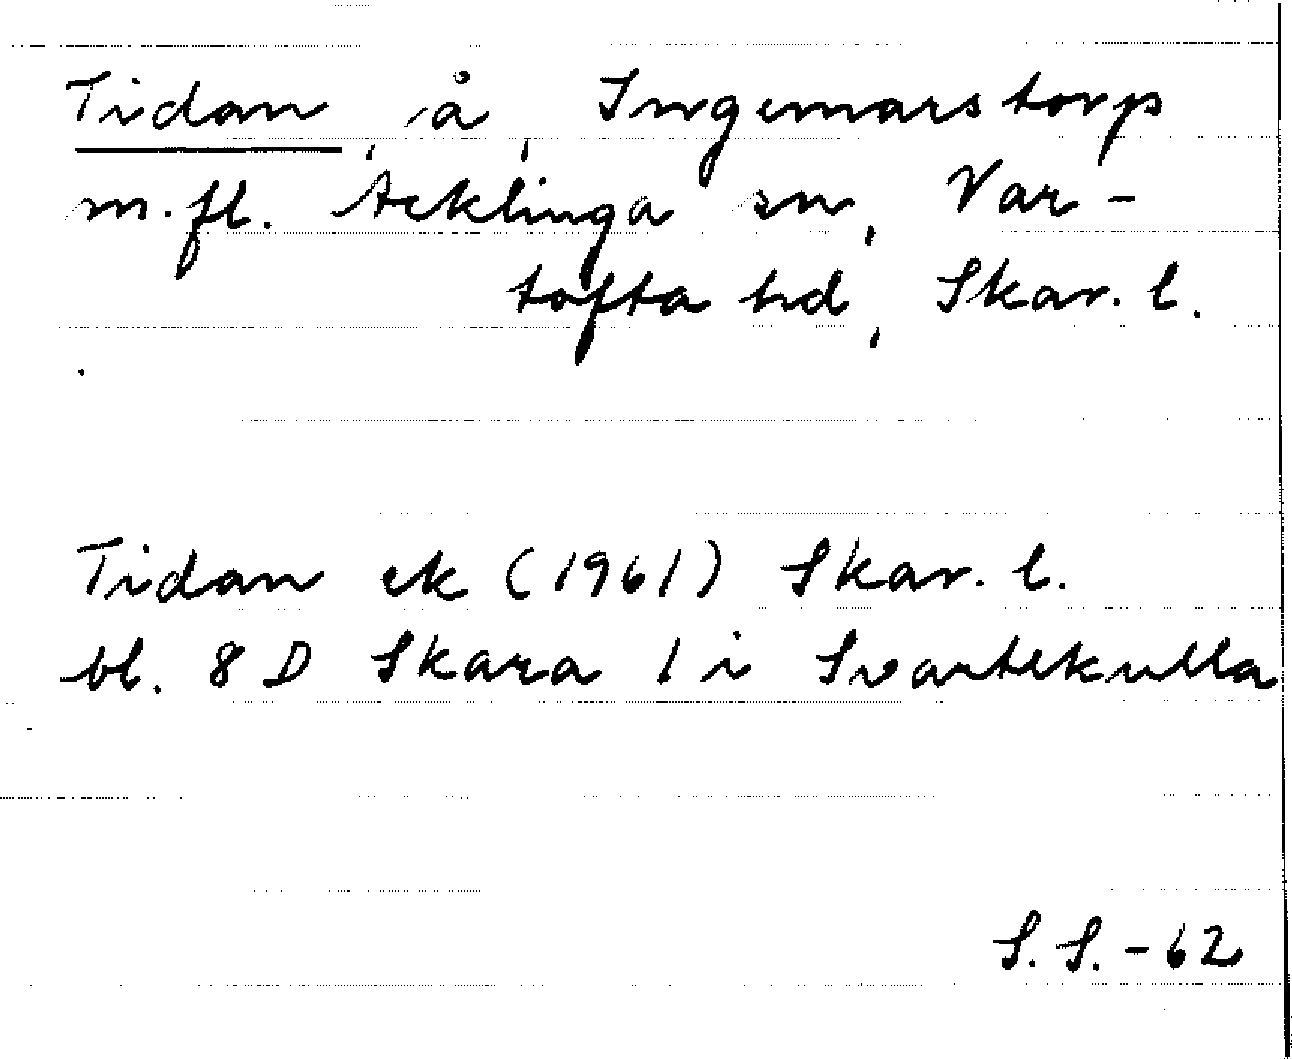 Tidan, å, Ingemarstorp
m.fl. Acklinga sn, Var-
tofta hd, Skar. l.
Tidan ek (1961) Skar. l.
bl. 8 D Skara 1 i Svartekulla
S. S. - 62